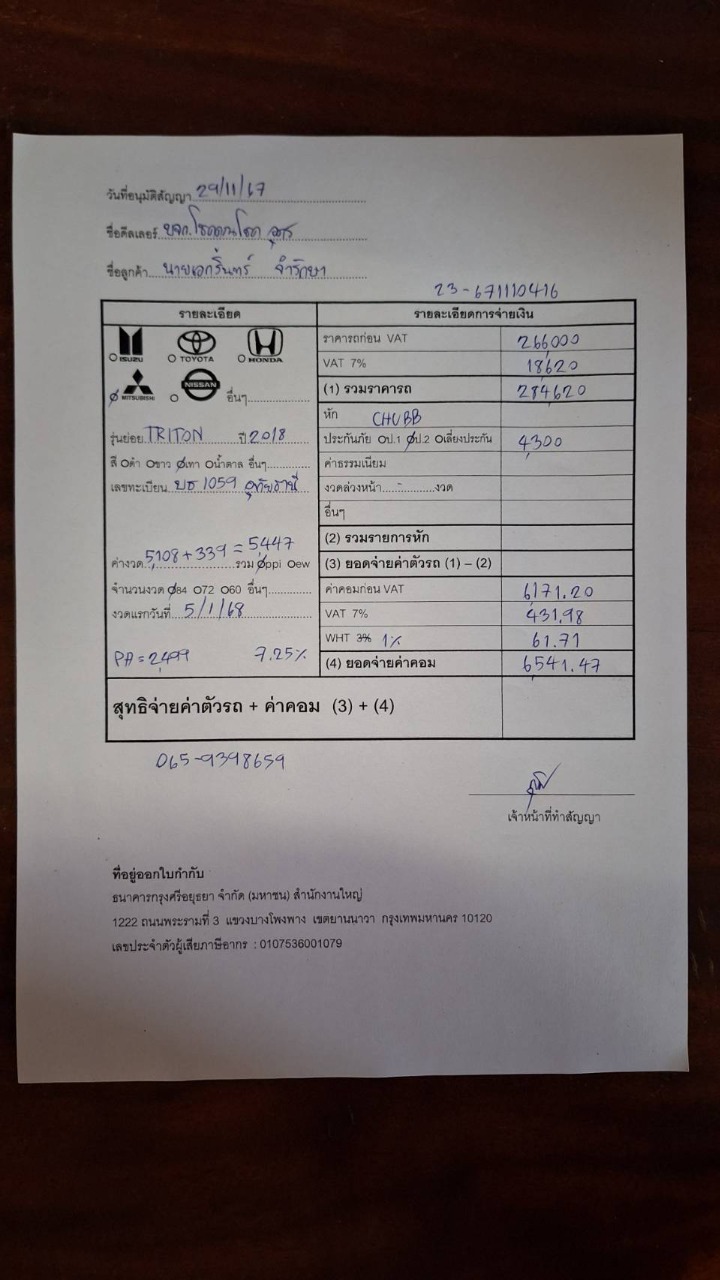 วันที่อนุมัติสัญญา 29/11/67
ชื่อดีลเลอร์ บจก.
ชื่อลูกค้า นายเอกรินทร์ จำรักษา
23-671110416
รายละเอียด
รายละเอียดการจ่ายเงิน
ISUZU TOYOTA HONDA
MITSUBISHI NISSAN อื่นๆ
รุ่นย่อย TRITON ปี 2018
สี ดำ ขาว เทา น้ำตาล อื่นๆ
เลขทะเบียน บธ 1059 อุทัยธานี
ค่างวด 5,108 + 339 = 5447 รวม ppi ew
จำนวนงวด 84 72 60 อื่นๆ
งวดแรกวันที่ 5/1/68
PA = 2,499 7.25%
ราคารถก่อน VAT 266,000
VAT 7% 18,620
(1) รวมราคารถ 284,620
หัก CHUBB
ประกันภัย ป.1 ป.2 เลี่ยงประกัน 4,300
ค่าธรรมเนียม
งวดล่วงหน้า งวด
อื่นๆ
(2) รวมรายการหัก
(3) ยอดจ่ายค่าตัวรถ (1) – (2)
ค่าคอมก่อน VAT 6,171.20
VAT 7% 431.98
WHT 3% 1% 61.71
(4) ยอดจ่ายค่าคอม 6,541.47
สุทธิจ่ายค่าตัวรถ + ค่าคอม (3) + (4)
065-9398659
เจ้าหน้าที่ทำสัญญา
ที่อยู่ออกใบกำกับ
ธนาคารกรุงศรีอยุธยา จำกัด (มหาชน) สำนักงานใหญ่
1222 ถนนพระรามที่ 3 แขวงบางโพงพาง เขตยานนาวา กรุงเทพมหานคร 10120
เลขประจำตัวผู้เสียภาษีอากร : 0107536001079